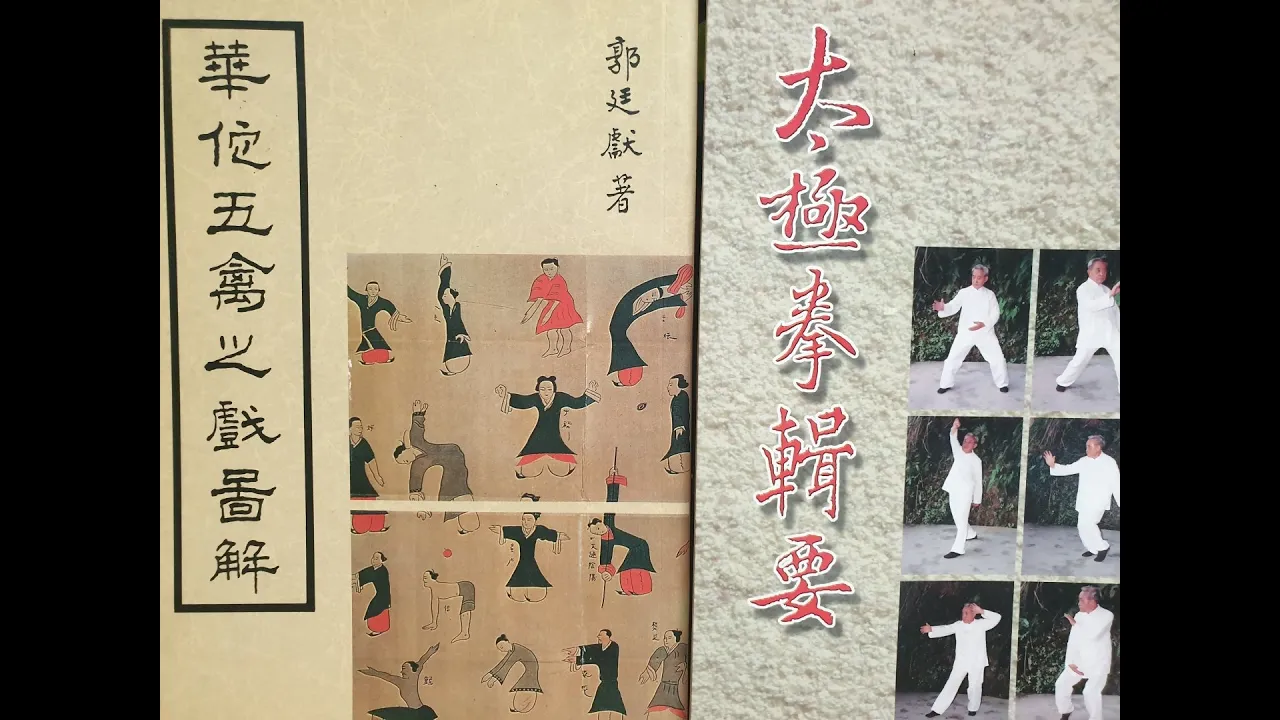 華佗五禽之戲圖解
郭廷獻著
太極拳輯要